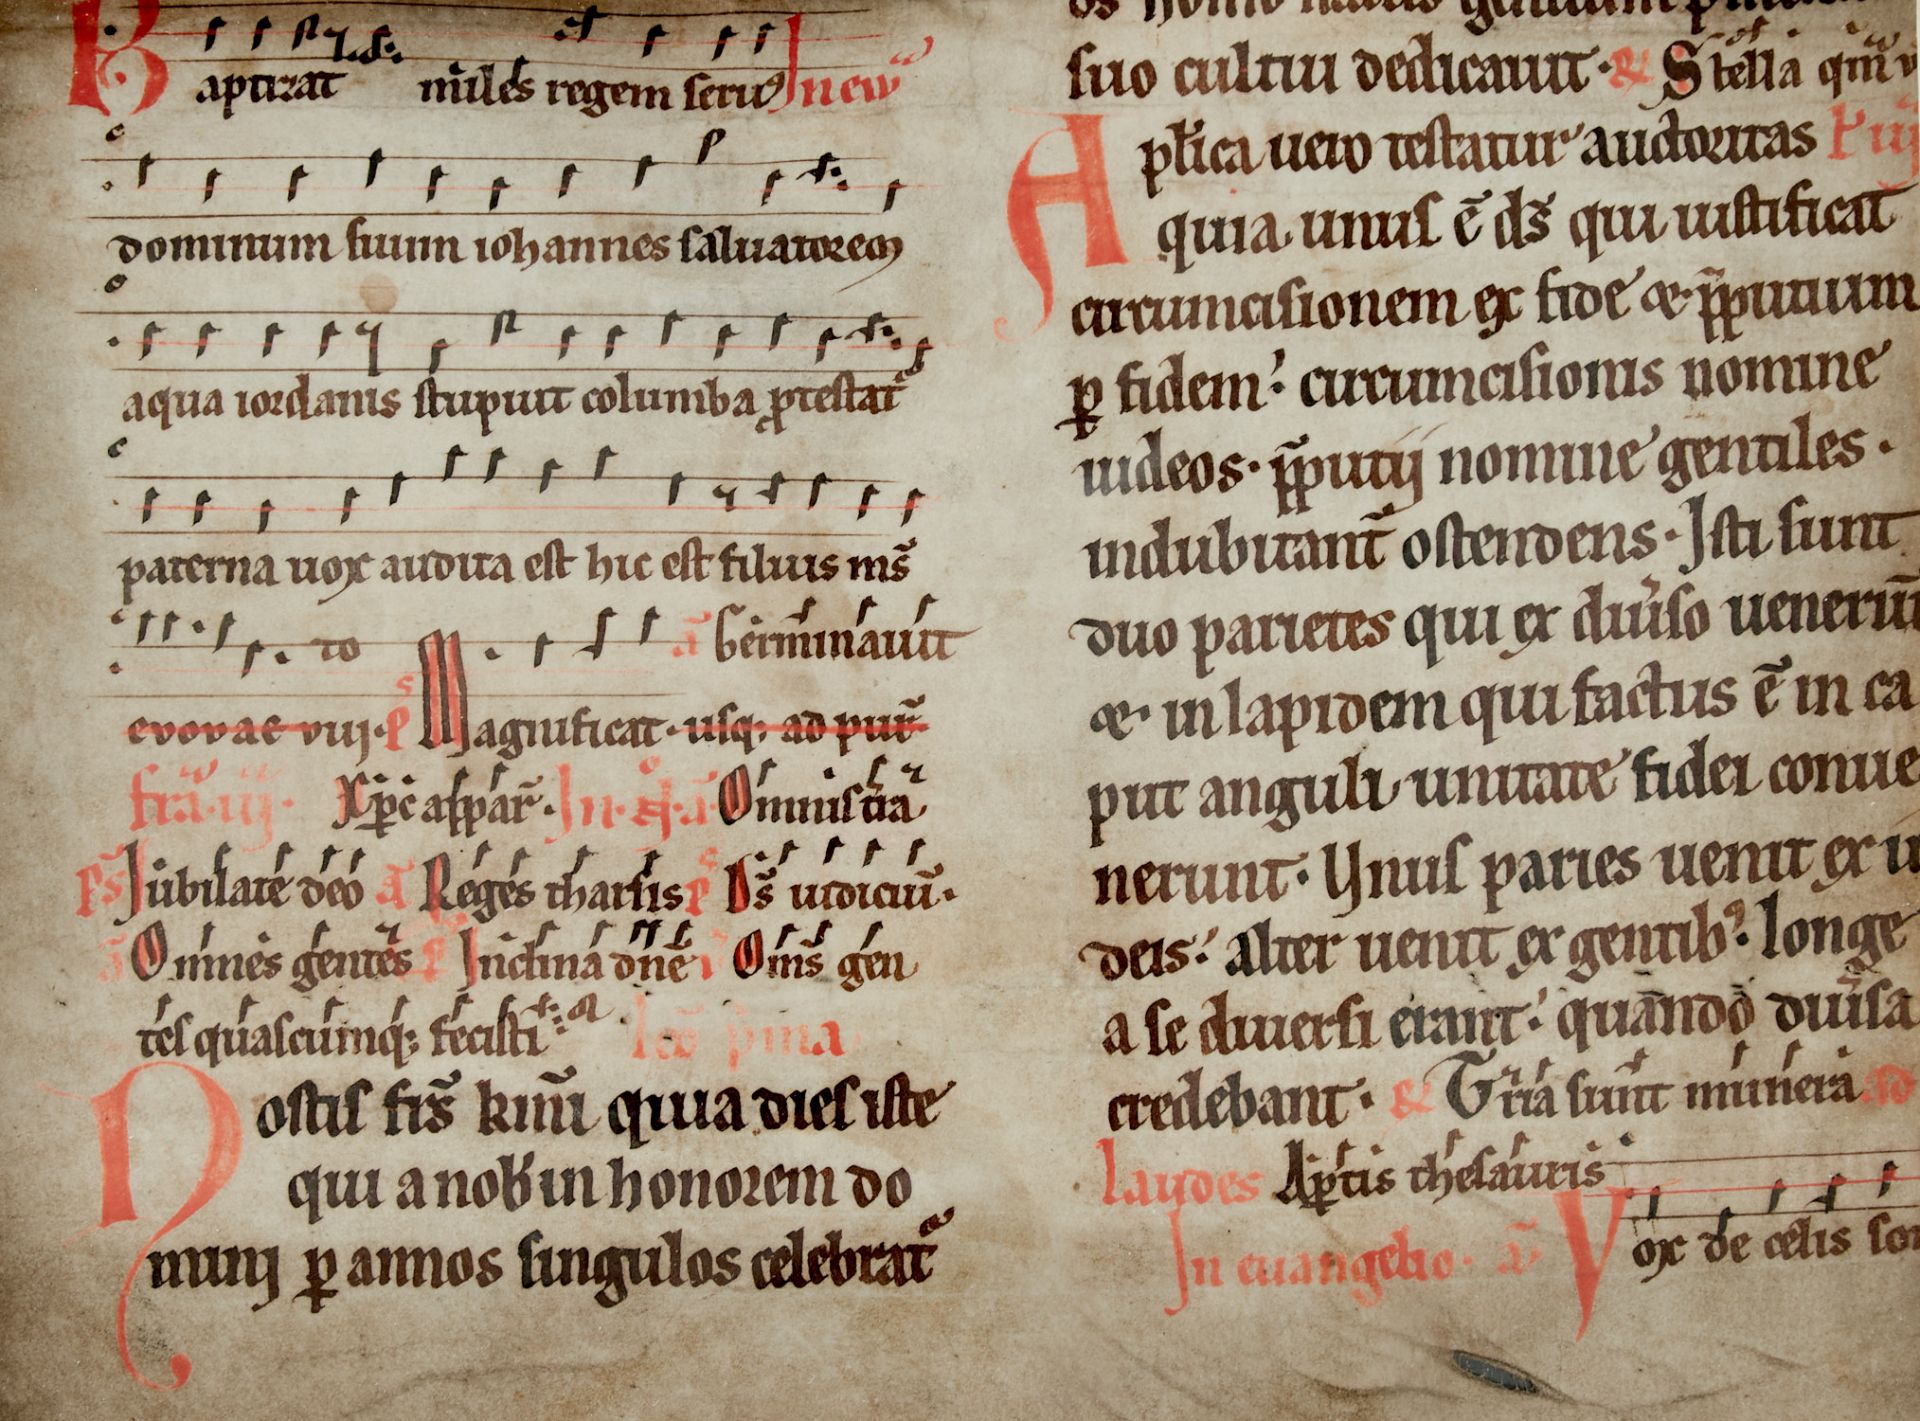 Baptizat miles regem seru9 In ew
dominum suum iohannes saluatorem
aqua iordanis stupuit columba ꝓtestat᷑
paterna uox audita est hic est filius ms̄
to a Germinauit
evovae viij. p̄ Magnificat. usq; ad pur̄
fr̄a. iij. Xp̄c appar̄. In. a Omnis tr̄a
ps̄ Jubilate deo a Reges tharsis p̄ Ds̄ iudiciū.
a Omnes gentes Inclina dn̄e Om̄s gen
tes quascumq; fecisti lc̄o p̄ma
Nostis fr̄s km̄i quia dies iste
qui a nob̄ in honorem do
minj ꝑ annos singulos celebrat᷑
suo cultui dedicauit. R Stella qm̄
Apl̄ica uero testatur auctoritas
quia unus ē ds̄ qui iustificat
circumcisionem ex fide & p̄putium
ꝑ fidem. circumcisionis nomine
iudeos. p̄putij nomine gentiles.
indubitant̄ ostendens. Isti sunt
duo parietes qui ex diu̾so uenerūt
& in lapidem qui factus ē in ca
put anguli unitate fidei conue
nerunt. Unus paries uenit ex iu
deis. alter uenit ex gentib9. longe
a se diuersi erant. quando diu̾sa
credebant. R Tria sunt munera ad
laudes Ap̄tis thesauris
In euangelio. a Vox de celis son